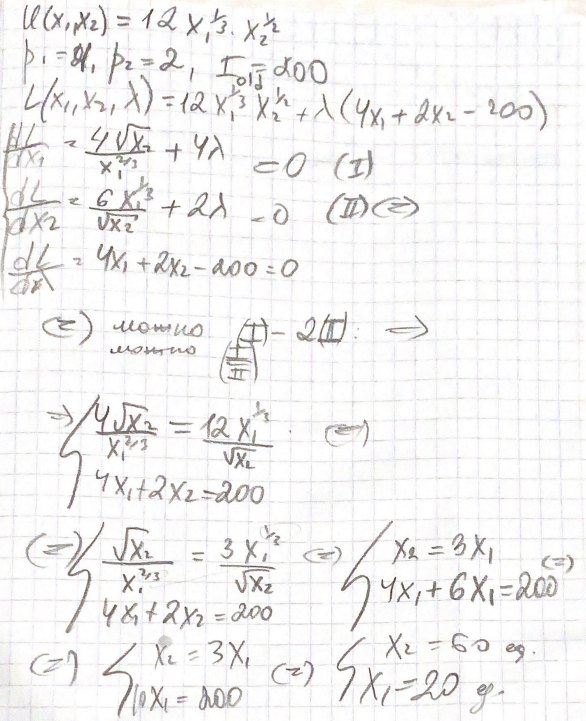 U(x₁,x₂) = 12 x₁^⅓ · x₂^½
p₁ = 4, p₂ = 2, I = 200
L(x₁, x₂, λ) = 12 x₁^⅓ x₂^½ + λ(4x₁ + 2x₂ - 200)
dL/dx₁ = 4√x₂/x₁^⅔ + 4λ = 0 (I)
dL/dx₂ = 6x₁^⅓/√x₂ + 2λ = 0 (II) (=)
dL/dλ = 4x₁ + 2x₂ - 200 = 0
(=) можно (I) - 2(II): ⇒
можно (I/II)
⇒ { 4√x₂/x₁^⅔ = 12x₁^⅓/√x₂ (=)
4x₁ + 2x₂ = 200
(=) { √x₂/x₁^⅔ = 3x₁^⅓/√x₂ (=) { x₂ = 3x₁ (=)
4x₁ + 2x₂ = 200 4x₁ + 6x₁ = 200
(=) { x₂ = 3x₁ (=) { x₂ = 60 ед.
10x₁ = 200 x₁ = 20 ед.